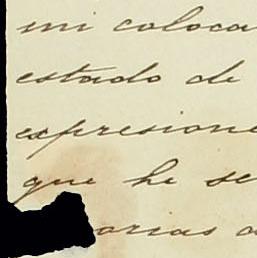 mi coloca
estado de
expresione
que he se
orias a